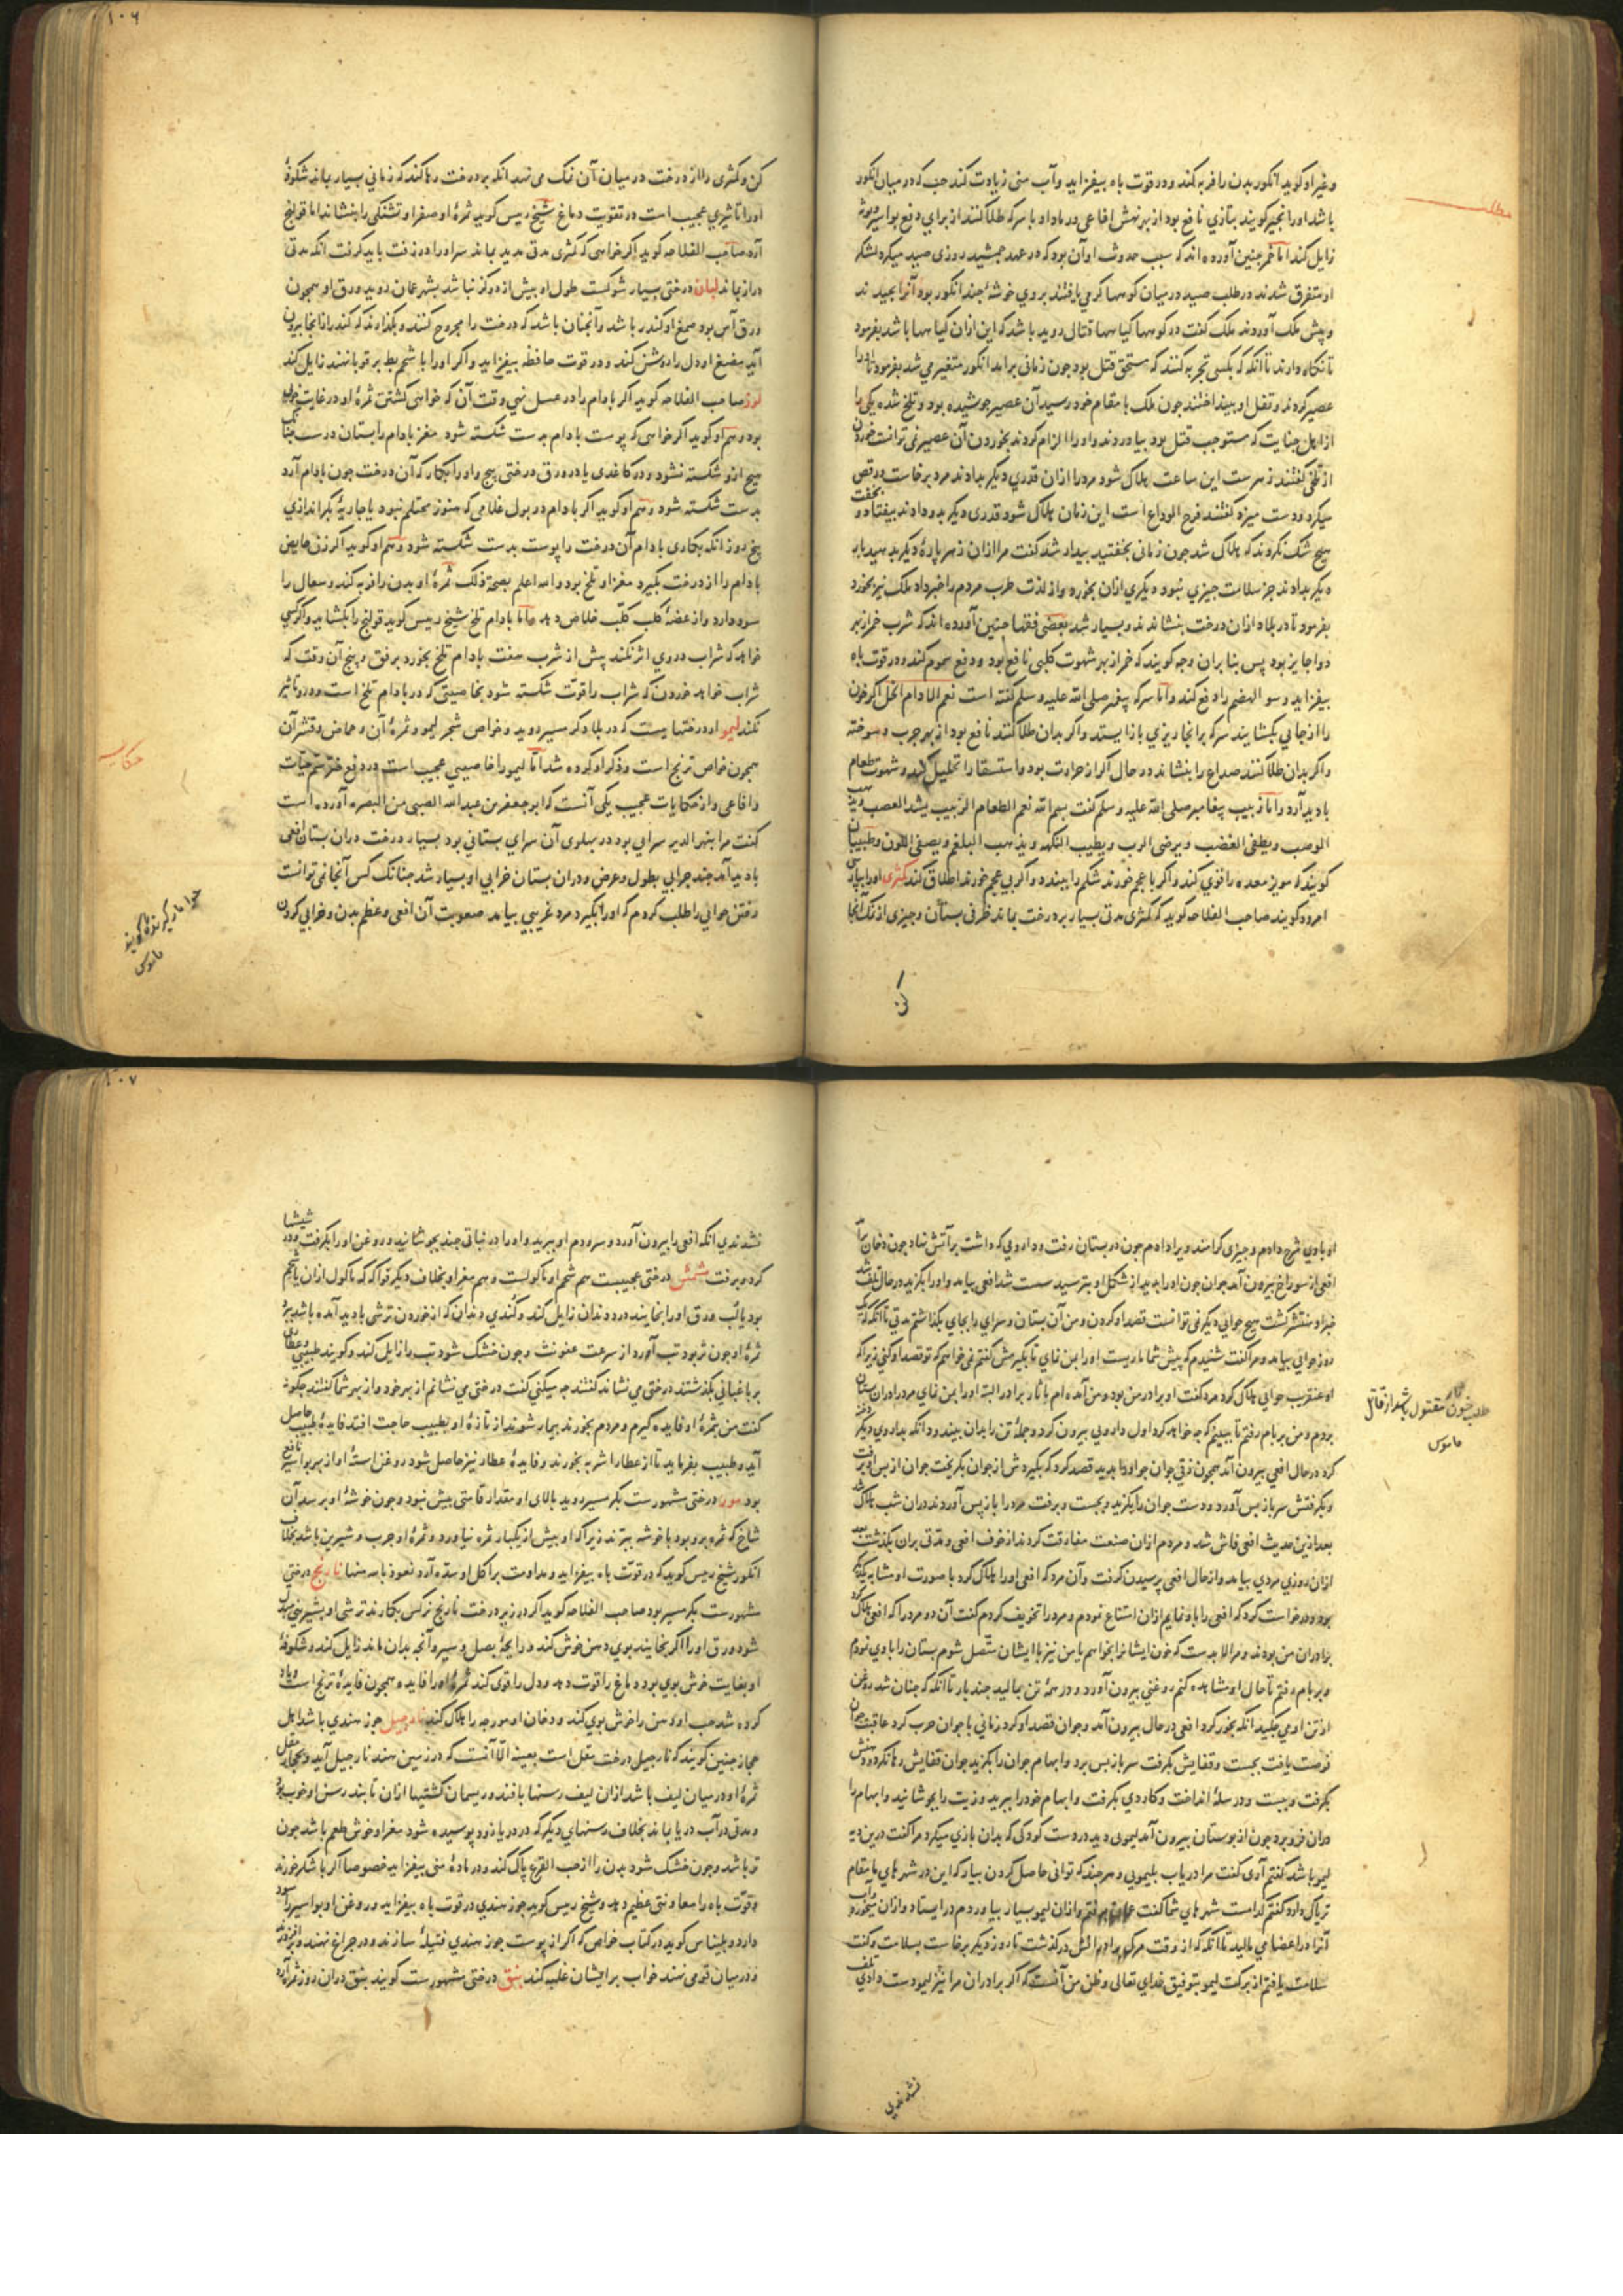 وغیر او کویند انکور بدن را فربه کند و در قوت باه بیفزاید و آب منی زیادت کند حب که در میان انکور
باشد اورا انجیر کویند بتازی نافع بود از بهر نهش افاعی در ماد او با سرکه طلا کنند از برای دفع بواسیر
زایل کند اما خمر جنین آورده اند که سبب حدوث او آن بود که در عهد جمشید روزی صید میکرد لشکر
او متفرق شدند در طلب صید در میان کوهها کرمی یافتند بروی خوشهٔ جند انکور بود آنرا بچیدند
و پیش ملک آوردند ملک کفت در کوهها کیاهها قتال روید باشد که این ازان کیاهها باشد بفرمود
تا نکاه دارند تا آنکه که بکسی تجربه کنند که مستحق قتل بود جون زمانی برامد انکور متغیر می شد بفرمود تا اورا
عصیر کردند و تفل او بینداختند جون ملک با مقام خود رسید آن عصیر جوشیده بود و تلخ شده یکی را
از اهل جنایت که مستوجب قتل بود بیاوردند و اورا الزام کردند بخوردن آن عصیر نمی توانست خوردن
از تلخی کفتند زهرست این ساعت هلاک شود مرد را ازان قدری دیکر بدادند مرد برخاست در رقص
میکرد و دست میزد کفتند فرح الوداع است این زمان هلاک شود قدری دیکر بدو دادند بیفتاد و بخفت
هیج شک نکردند که هلاک شد جون زمانی بخفتید بیدار شد کفت مرا ازان زهر پارهٔ دیکر بدهید بار
دیکر بدادند جز سلامت جیزی نبود دیکری ازان بخورد و از لذت طرب مردم را خبر داد ملک نیز بخورد
بفرمود تا در بلاد ازان درخت بنشاندند و بسیار شد بعضی فقها جنین آورده اند که شرب خمر از بهر
دوا جایز بود پس بنا بران وجه کویند که خمر از بهر شهوت کلبی نافع بود و دفع سموم کند و در قوت باه
بیفزاید و سو الهضم را دفع کند و اما سرکه پیغمبر صلی الله علیه و سلم کفته است نعم الادام الخل اکر خون
را از جایی بکشایند سرکه برانجا ریزی باز ایستد و اکر بدان طلا کنند نافع بود از بهر جرب و سوخته
واکر بدان طلا کنند صداع را بنشاند در حال اکر از حرارت بود و استسقا را تحلیل کند و شهوت طعام
بادید آرد و اما زبیب پیغامبر صلی الله علیه و سلم کفت بسم الله نعم الطعام الزبیب یشد العصب و یذهب
الوصب و یطفی الغضب و یرضی الرب و یطیب النکهه و یذهب البلغم و یصفی اللون و طبیبان
کویند که مویز معده را قوی کند و اکر با عجم خورند شکم را ببندد و اکر بی عجم خورند اطلاق کند کمثری اورا بپارسی
امرود کویند صاحب الفلاحه کوید که کمثری مدتی بسیار بر درخت بماند ظرفی بستان و جیزی از نمک آنجا
کن
۱۰۶
کن و کمثری را از درخت در میان آن نمک می نهد انکه بر درخت رها کند که زمانی بسیار بماند شکوفهٔ
اورا تاثیری عجیب است در تقویت دماغ شیخ رییس کوید ثمرهٔ او صفرا و تشنکی را بنشاند اما قولنج
آرد صاحب الفلاحه کوید اکر خواسی که کمثری مدتی مدید بماند سر اورا در زفت باید کرفت انکه مدتی
دراز بماند لبان درختی بسیار شوکست طول او بیش از دو کز نباشد بشهر عمان روید ورق او همجون
ورق آس بود صمغ او کندر باشد و آنجنان باشد که درخت را مجروح کنند و بکذارند که کندر از انجا بیرون
آید مضغ او دل را روشن کند و در قوت حافظه بیفزاید و اکر اورا با شحم بط بر قوبا نهند زایل کند
لوز صاحب الفلاحه کوید اکر بادام را در عسل نهی وقت آن که خواسی کشتن ثمرهٔ او در غایت خوشی
بود و هم او کوید اکر خواسی که پوست بادام بدست شکسته شود مغز بادام را بستان درست جنانک
هیج ازو شکسته نشود و در کاغدی یا در ورق درختی پیج و اورا بکار که آن درخت جون بادام آرد
بدست شکسته شود و هم او کوید اکر بادام در بول غلامی که هنوز محتلم نبود یا جاریهٔ بکر اندازی
پنج روز انکه بکاری بادام آن درخت را پوست بدست شکسته شود و هم او کوید اکر زن حایض
بادام را از درخت بکیرد مغز او تلخ بود و الله اعلم بصحة ذلک ثمرهٔ او بدن را فربه کند و سعال را
سود دارد و از عضهٔ کلب کلب خلاص دهد و اما بادام تلخ شیخ رییس کوید قولنج را بکشاید و اکر کسی
خواهد که شراب در وی اثر نکند پیش از شرب هفت بادام تلخ بخورد برفق و پنج آن وقت که
شراب خواهد خوردن که شراب را قوت شکسته شود بخاصیتی که در بادام تلخ است و درو تاثیر
نکند لیمو از درختهایست که در بلاد کرمسیر روید و خواص شجر لیمو و ثمرهٔ آن و حماض و قشر آن
همجون خواص ترنج است و ذکر او کرده شد اما لیمو را خاصیتی عجیب است در دفع ضرر سم حیات
و افاعی و از حکایات عجیب یکی آنست که ابو جعفر بن عبد الله الضبی من البصره آورده است
کفت مرا بنهر الدیر سرایی بود در پهلوی آن سرای بستانی بود بسیار درخت دران بستان افعی
بادید آمد جند جرابی بطول و عرض و دران بستان خرابی او بسیار شد جنانک کس آنجا نمی توانست
رفتن حوایی را طلب کردم که اورا بکیرد مرد غریبی بیامد صعوبت آن افعی و عظم بدن و خرابی کردن
حکایت
حوا مارکیرنده کویند
قاموس
او باوی شرح دادم و جیزی کرامند ویرا دادم جون در بستان رفت و دارویی که داشت بر آتش نهاد جون دخان برآمد
افعی از سوراخ بیرون آمد جوان جون اورا بدید از شکل او بترسید سست شد افعی بیامد و اورا بکزید در حال تلف شد
خبر او منتشر کشت هیج حوایی دیکر نمی توانست قصد او کردن و من آن بستان و سرای را بجای بکذاشتم مدتی تا آنکه که یک
روز حوایی بیامد و مرا کفت شنیدم که پیش شما ماریست اورا بمن نمای تا بکیرمش کفتم نمی خواهم که تو قصد او کنی زیرا که
او عنقریب حوایی هلاک کرد مرد کفت او برادر من بود و من آمده ام تا ثار برادر البته اورا بمن نمای مرد را دران بستان
بودم و من بر بام رفتم تا ببینم که جه خواهد کرد اول دارویی بیرون کرد و جملهٔ تن را بدان بیندود انکه بدا روی دیکر
کرد در حال افعی بیرون آمد همجون زقی جوان جو اورا بدید قصد کرد که بکیردش از جوان بکریخت جوان از پس او برفت
و بکرفتش سر باز پس آورد و دست جوان را بکزید و بجست و برفت مرد را باز پس آوردند دران شب هلاک شد
بعد ازین حدیث افعی فاش شد و مردم ازان صنعت مفارقت کردند از خوف افعی و مدتی بران بکذشت بعد
ازان روزی مردی بیامد و از حال افعی پرسیدن کرفت و آن مرد که افعی اورا هلاک کرد با صورت او مشابه یکدیکر
بود و درخواست کرد که افعی را باو نمایم ازان امتناع نمودم و مرد را تخویف کردم کفت آن دو مرد را که افعی هلاک کرد
برادران من بودند و مرا لابدست که خون ایشانرا بخواهم یا من نیز با ایشان متصل شوم بستان را باوی نمودم
و بر بام رفتم تا حال او مشاهده کنم روغنی بیرون آورد و در همهٔ تن بمالید جند بار تا آنکه که جنان شد روغن
از تن او می جکید انکه بخور کرد افعی در حال بیرون آمد و جوان قصد او کرد زمانی با جوان حرب کرد عاقبت جوان
فرصت یافت بجست و قفایش بکرفت سر باز پس برد و ابهام جوان را بکزید جوان قفایش رها نکرد و دهنش
بکرفت و ببست و در سلهٔ انداخت و کاردی بکرفت و ابهام خود را ببرید و زیت را بجوشانید و ابهام را
دران فرو برد جون از بوستان بیرون آمد لیمویی دید در دست کودکی که بدان بازی میکرد مرا کفت درین دیه
لیمو باشد کفتم آری کفت مرا دریاب بلیمویی و هر جند که توانی حاصل کردن بیار که این در شهرهای ما بمقام
تریاک دارد کفتم کدامست شهرهای شما کفت عمان برفتم و ازان لیمو بسیار بیاوردم در ایستاد و ازان میخورد و آب
آنرا در اعضا می مالید تا آنکه که از وقت مرک برادرانش درکذشت تا روز دیکر برخاست بسلامت و کفت
سلامت یافتم از برکت لیمو بتوفیق خدای تعالی و ظن من آنست که اکر برادران مرا نیز لیمو دست دادی تلف
نشدندی
ثار طلب خون مقتول باشد از قاتل
قاموس
۱۰۷
نشدندی انکه افعی را بیرون آورد و سر و دم او ببرید و اورا در نباتی جند بجوشانید و روغن اورا بکرفت و در شیشها
کرد و برفت مشمش درختی عجیبست هم شحم او ماکولست و هم مغز او بخلاف دیکر فواکه که ماکول ازان یا شحم
بود یا لب ورق اورا بخایند درد دندان زایل کند و کندی دندان که از خوردن ترشی بادید آمده باشد ببرد
ثمرهٔ او جون تر بود تب آورد از سرعت عفونت و جون خشک شود تب را زایل کند و کویند طبیبی و عطاری
بر باغبانی بکذشتند درختی می نشاند کفتند جه میکنی کفت درختی می نشانم از بهر خود و از بهر شما کفتند جکونه
کفت من ثمرهٔ او فایده کیرم و مردم بخورند بیمار شوند از تازهٔ او بطبیب حاجت افتد فایدهٔ طبیب حاصل
آید و طبیب بفرماید تا از عطار اشربه بخورند و فایدهٔ عطار نیز حاصل شود روغن استهٔ او از بهر بواسیر نافع
بود موز درختی مشهورست بکرمسیر روید بالای او مقدار قامتی بیش نبود و جون خوشهٔ او برسد آن
شاخ که ثمره برو بود با خوشه ببرند زیرا که او بیش از یکبار ثمره نیاورد و ثمرهٔ او جرب و شیرین باشد بخلاف
انکور شیخ رییس کوید که در قوت باه بیفزاید و مداومت بر اکل او سده آرد نعوذ بالله منها نارنج درختی
مشهورست بکرمسیر بود صاحب الفلاحه کوید اکر در زیر درخت نارنج نرکس بکارند ترشی او بشیرینی مبدل
شود ورق اورا اکر بخایند بوی دهن خوش کند و رایحهٔ بصل و سیر و آنجه بدان ماند زایل کند و شکوفهٔ
او بغایت خوش بوی بود و دماغ را قوت دهد و دل را قوی کند ثمرهٔ او را فایده همجون فایدهٔ ترنج است و یاد
کرده شد حب او دهن را خوش بوی کند و دخان او مورجه را هلاک کند نارجیل جوز هندی باشد اهل
حجاز جنین کویند که نارجیل درخت مقل است بعینه الا آنست که در زمین هند نارجیل آید و بحجاز مقل
ثمرهٔ او در میان لیف باشد ازان لیف رسنها بافند و ریسمان کشتیها ازان تابند رسن او خوب بود
و مدتی در آب دریا بماند بخلاف رسنهای دیکر که در دریا زود پوسیده شود مغز او خوش طعم باشد جون
تر باشد و جون خشک شود بدن را از حب القرع پاک کند و در مادهٔ منی بیفزاید خصوصا اکر با شکر خورند
و قوت باه را معاونتی عظیم دهد و شیخ رییس کوید جوز هندی در قوت باه بیفزاید و روغن او بواسیر را سود
دارد و بلیناس کوید در کتاب خواص که اکر از پوست جوز هندی فتیلهٔ سازند و در جراغ نهند و برافروزند
و در میان قومی نهند خواب بر ایشان غلبه کند نبق درختی مشهورست کویند نبق دران روز ثمره آرد